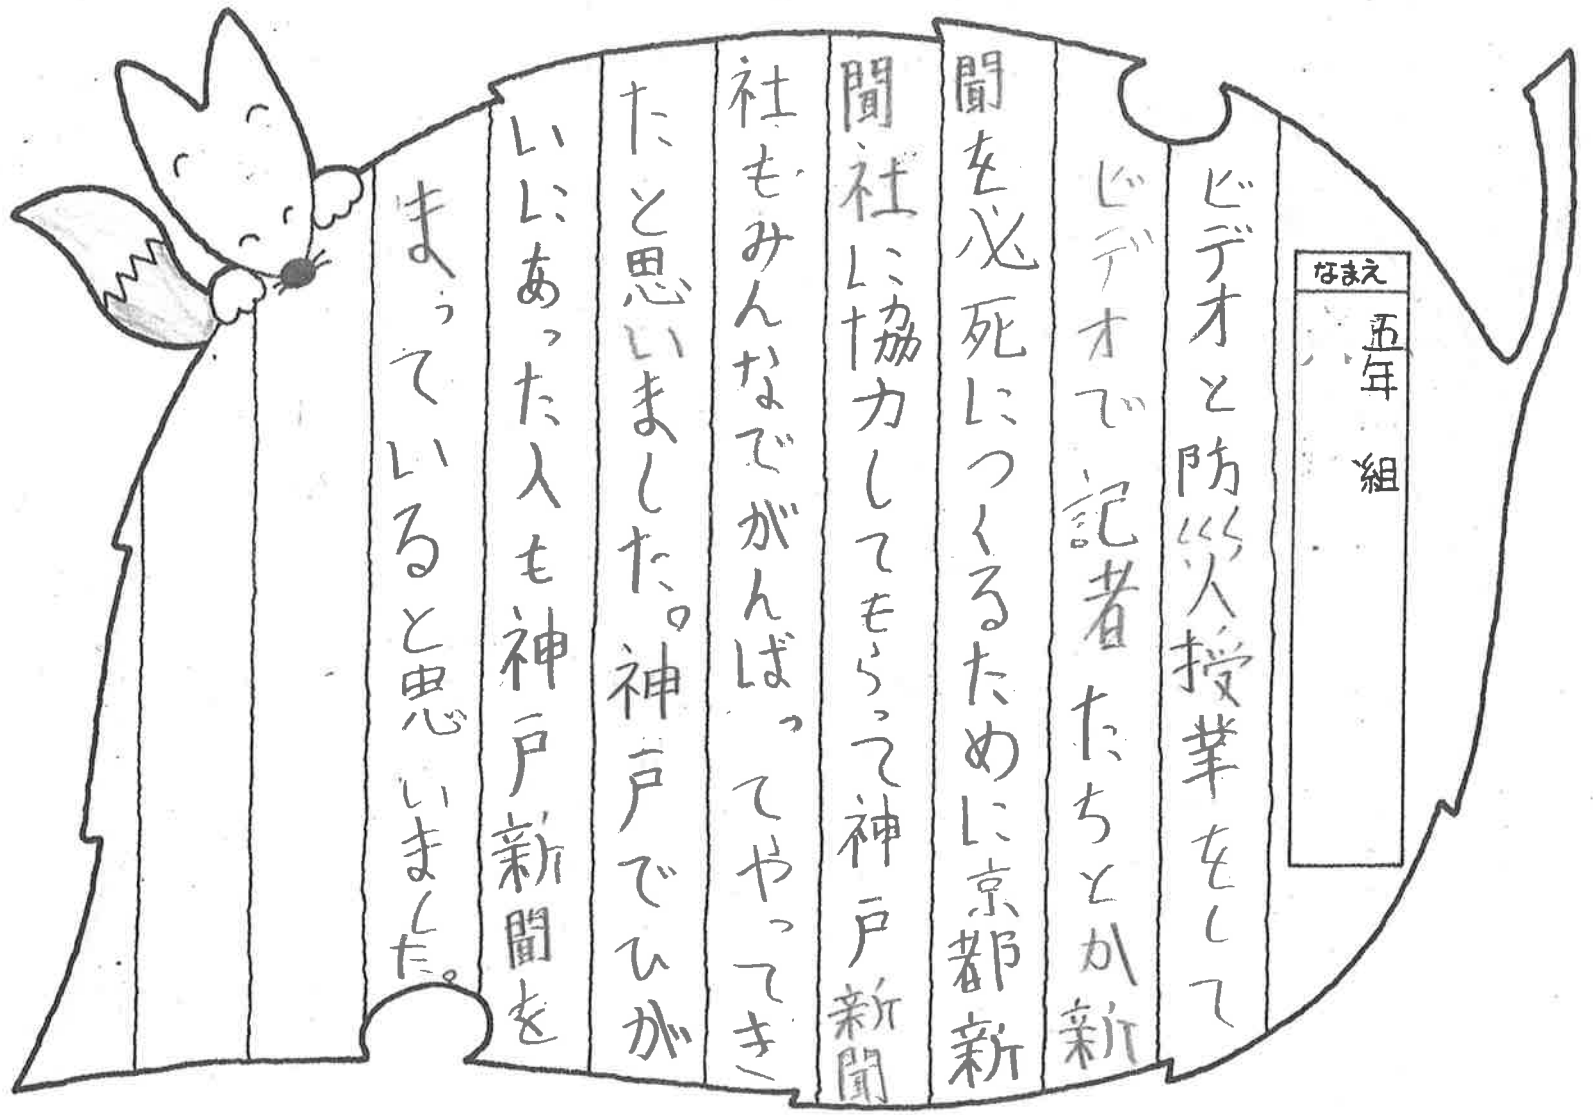 なまえ
五年 組
ビデオと防災授業をして
ビデオで記者たちとか新
聞を必死につくるために京都新
聞社に協力してもらって神戸新聞
社もみんなでがんばってやってき
たと思いました。神戸でひが
いにあった人も神戸新聞を
まっていると思いました。